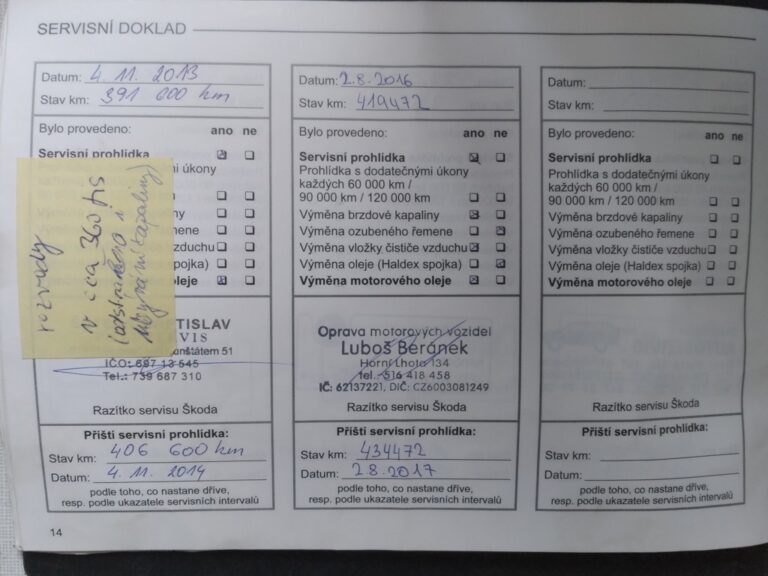 SERVISNÍ DOKLAD
Datum: 4. 11. 2013
Stav km: 391 000 km
Bylo provedeno: ano ne
Servisní prohlídka
úkony
duchu
pojka)
oleje
TISLAV
VIS
unštátem 51
IČO: 697 13 545
Tel.: 739 687 310
Razítko servisu Škoda
Příští servisní prohlídka:
Stav km: 406 600 km
Datum: 4. 11. 2014
podle toho, co nastane dříve,
resp. podle ukazatele servisních intervalů
rozvody
v cca 360 tis
(odstraněno i
kapaliny)
Datum: 2.8.2016
Stav km: 419472
Bylo provedeno: ano ne
Servisní prohlídka
Prohlídka s dodatečnými úkony
každých 60 000 km /
90 000 km / 120 000 km
Výměna brzdové kapaliny
Výměna ozubeného řemene
Výměna vložky čističe vzduchu
Výměna oleje (Haldex spojka)
Výměna motorového oleje
Oprava motorových vozidel
Luboš Beránek
Horní Lhota 134
tel. 516 418 458
IČ: 62137221, DIČ: CZ6003081249
Razítko servisu Škoda
Příští servisní prohlídka:
Stav km: 434472
Datum: 2.8.2017
podle toho, co nastane dříve,
resp. podle ukazatele servisních intervalů
Datum:
Stav km:
Bylo provedeno: ano ne
Servisní prohlídka
Prohlídka s dodatečnými úkony
každých 60 000 km /
90 000 km / 120 000 km
Výměna brzdové kapaliny
Výměna ozubeného řemene
Výměna vložky čističe vzduchu
Výměna oleje (Haldex spojka)
Výměna motorového oleje
Razítko servisu Škoda
Příští servisní prohlídka:
Stav km:
Datum:
podle toho, co nastane dříve,
resp. podle ukazatele servisních intervalů
14